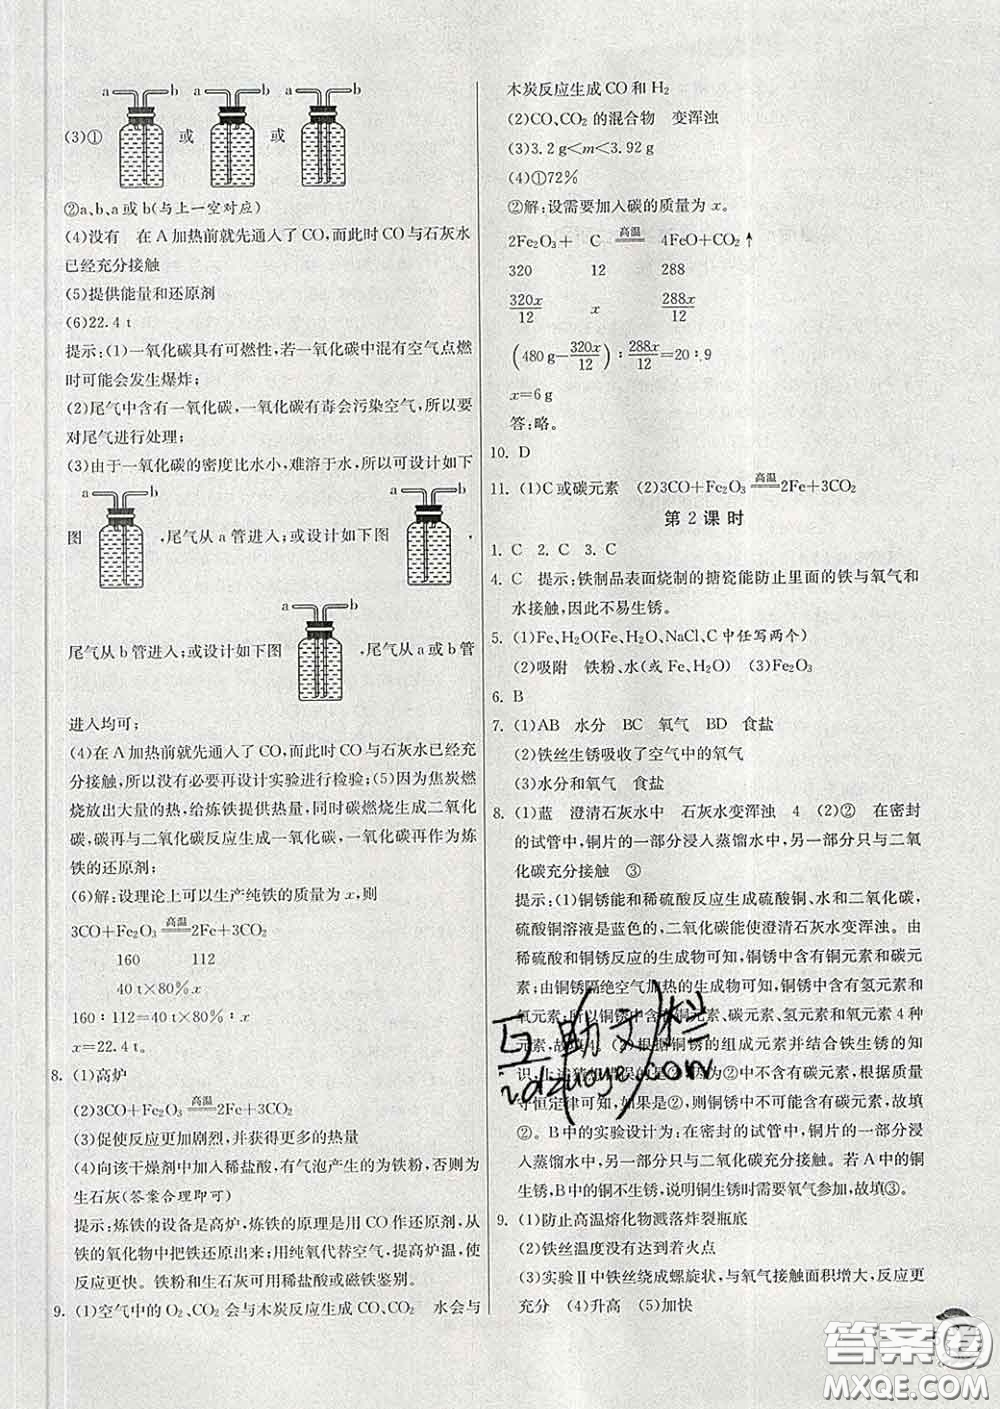 a b a b a b
(3)① 或 或
②a、b、a或b(与上一空对应)
(4)没有 在A加热前就先通入了CO,而此时CO与石灰水
已经充分接触
(5)提供能量和还原剂
(6)22.4 t
提示:(1)一氧化碳具有可燃性,若一氧化碳中混有空气点燃
时可能会发生爆炸;
(2)尾气中含有一氧化碳,一氧化碳有毒会污染空气,所以要
对尾气进行处理;
(3)由于一氧化碳的密度比水小,难溶于水,所以可设计如下
a b a b
图 ,尾气从a管进入;或设计如下图 ,
a b
尾气从b管进入;或设计如下图 ,尾气从a或b管
进入均可;
(4)在A加热前就先通入了CO,而此时CO与石灰水已经充
分接触,所以没有必要再设计实验进行检验;(5)因为焦炭燃
烧放出大量的热,给炼铁提供热量,同时碳燃烧生成二氧化
碳,碳再与二氧化碳反应生成一氧化碳,一氧化碳再作为炼
铁的还原剂;
(6)解:设理论上可以生产纯铁的质量为x,则
3CO+Fe₂O₃ 高温 2Fe+3CO₂
160 112
40 t×80% x
160∶112=40 t×80%∶x
x=22.4 t。
8. (1)高炉
(2)3CO+Fe₂O₃ 高温 2Fe+3CO₂
(3)促使反应更加剧烈,并获得更多的热量
(4)向该干燥剂中加入稀盐酸,有气泡产生的为铁粉,否则为
生石灰(答案合理即可)
提示:炼铁的设备是高炉,炼铁的原理是用CO作还原剂,从
铁的氧化物中把铁还原出来;用纯氧代替空气,提高炉温,使
反应更快。铁粉和生石灰可用稀盐酸或磁铁鉴别。
9. (1)空气中的O₂、CO₂会与木炭反应生成CO、CO₂ 水会与
木炭反应生成CO和H₂
(2)CO、CO₂的混合物 变浑浊
(3)3.2 g<m<3.92 g
(4)①72%
②解:设需要加入碳的质量为x。
2Fe₂O₃+ C 高温 4FeO+CO₂↑
320 12 288
320x/12 x 288x/12
(480 g-320x/12)∶288x/12=20∶9
x=6 g
答:略。
10. D
11. (1)C或碳元素 (2)3CO+Fe₂O₃ 高温 2Fe+3CO₂
第2课时
1. C 2. C 3. C
4. C 提示:铁制品表面烧制的搪瓷能防止里面的铁与氧气和
水接触,因此不易生锈。
5. (1)Fe、H₂O(Fe、H₂O、NaCl、C中任写两个)
(2)吸附 铁粉、水(或Fe、H₂O) (3)Fe₂O₃
6. B
7. (1)AB 水分 BC 氧气 BD 食盐
(2)铁丝生锈吸收了空气中的氧气
(3)水分和氧气 食盐
8. (1)蓝 澄清石灰水中 石灰水变浑浊 4 (2)② 在密封
的试管中,铜片的一部分浸入蒸馏水中,另一部分只与二氧
化碳充分接触 ③
提示:(1)铜锈能和稀硫酸反应生成硫酸铜、水和二氧化碳,
硫酸铜溶液是蓝色的,二氧化碳能使澄清石灰水变浑浊。由
稀硫酸和铜锈反应的生成物可知,铜锈中含有铜元素和碳元
素;由铜锈隔绝空气加热的生成物可知,铜锈中含有氢元素和
氧元素,所以铜锈中含有铜元素、碳元素、氢元素和氧元素4种
元素,故填4。(2)根据铜锈的组成元素并结合铁生锈的知
识,上述猜想错误的是②,因为②中不含碳元素,根据质量
守恒定律可知,如果是②,则铜锈中不可能含有碳元素,故填
②。B中的实验设计为:在密封的试管中,铜片的一部分浸
入蒸馏水中,另一部分只与二氧化碳充分接触。若A中的铜
生锈,B中的铜不生锈,说明铜生锈时需要氧气参加,故填③。
9. (1)防止高温熔化物溅落炸裂瓶底
(2)铁丝温度没有达到着火点
(3)实验Ⅱ中铁丝绕成螺旋状,与氧气接触面积增大,反应更
充分 (4)升高 (5)加快
答案圈
MXQE.COM